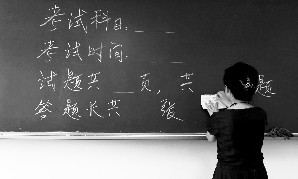 考试科目:____
考试时间:____
试题共__页,共 题
答题长共 张